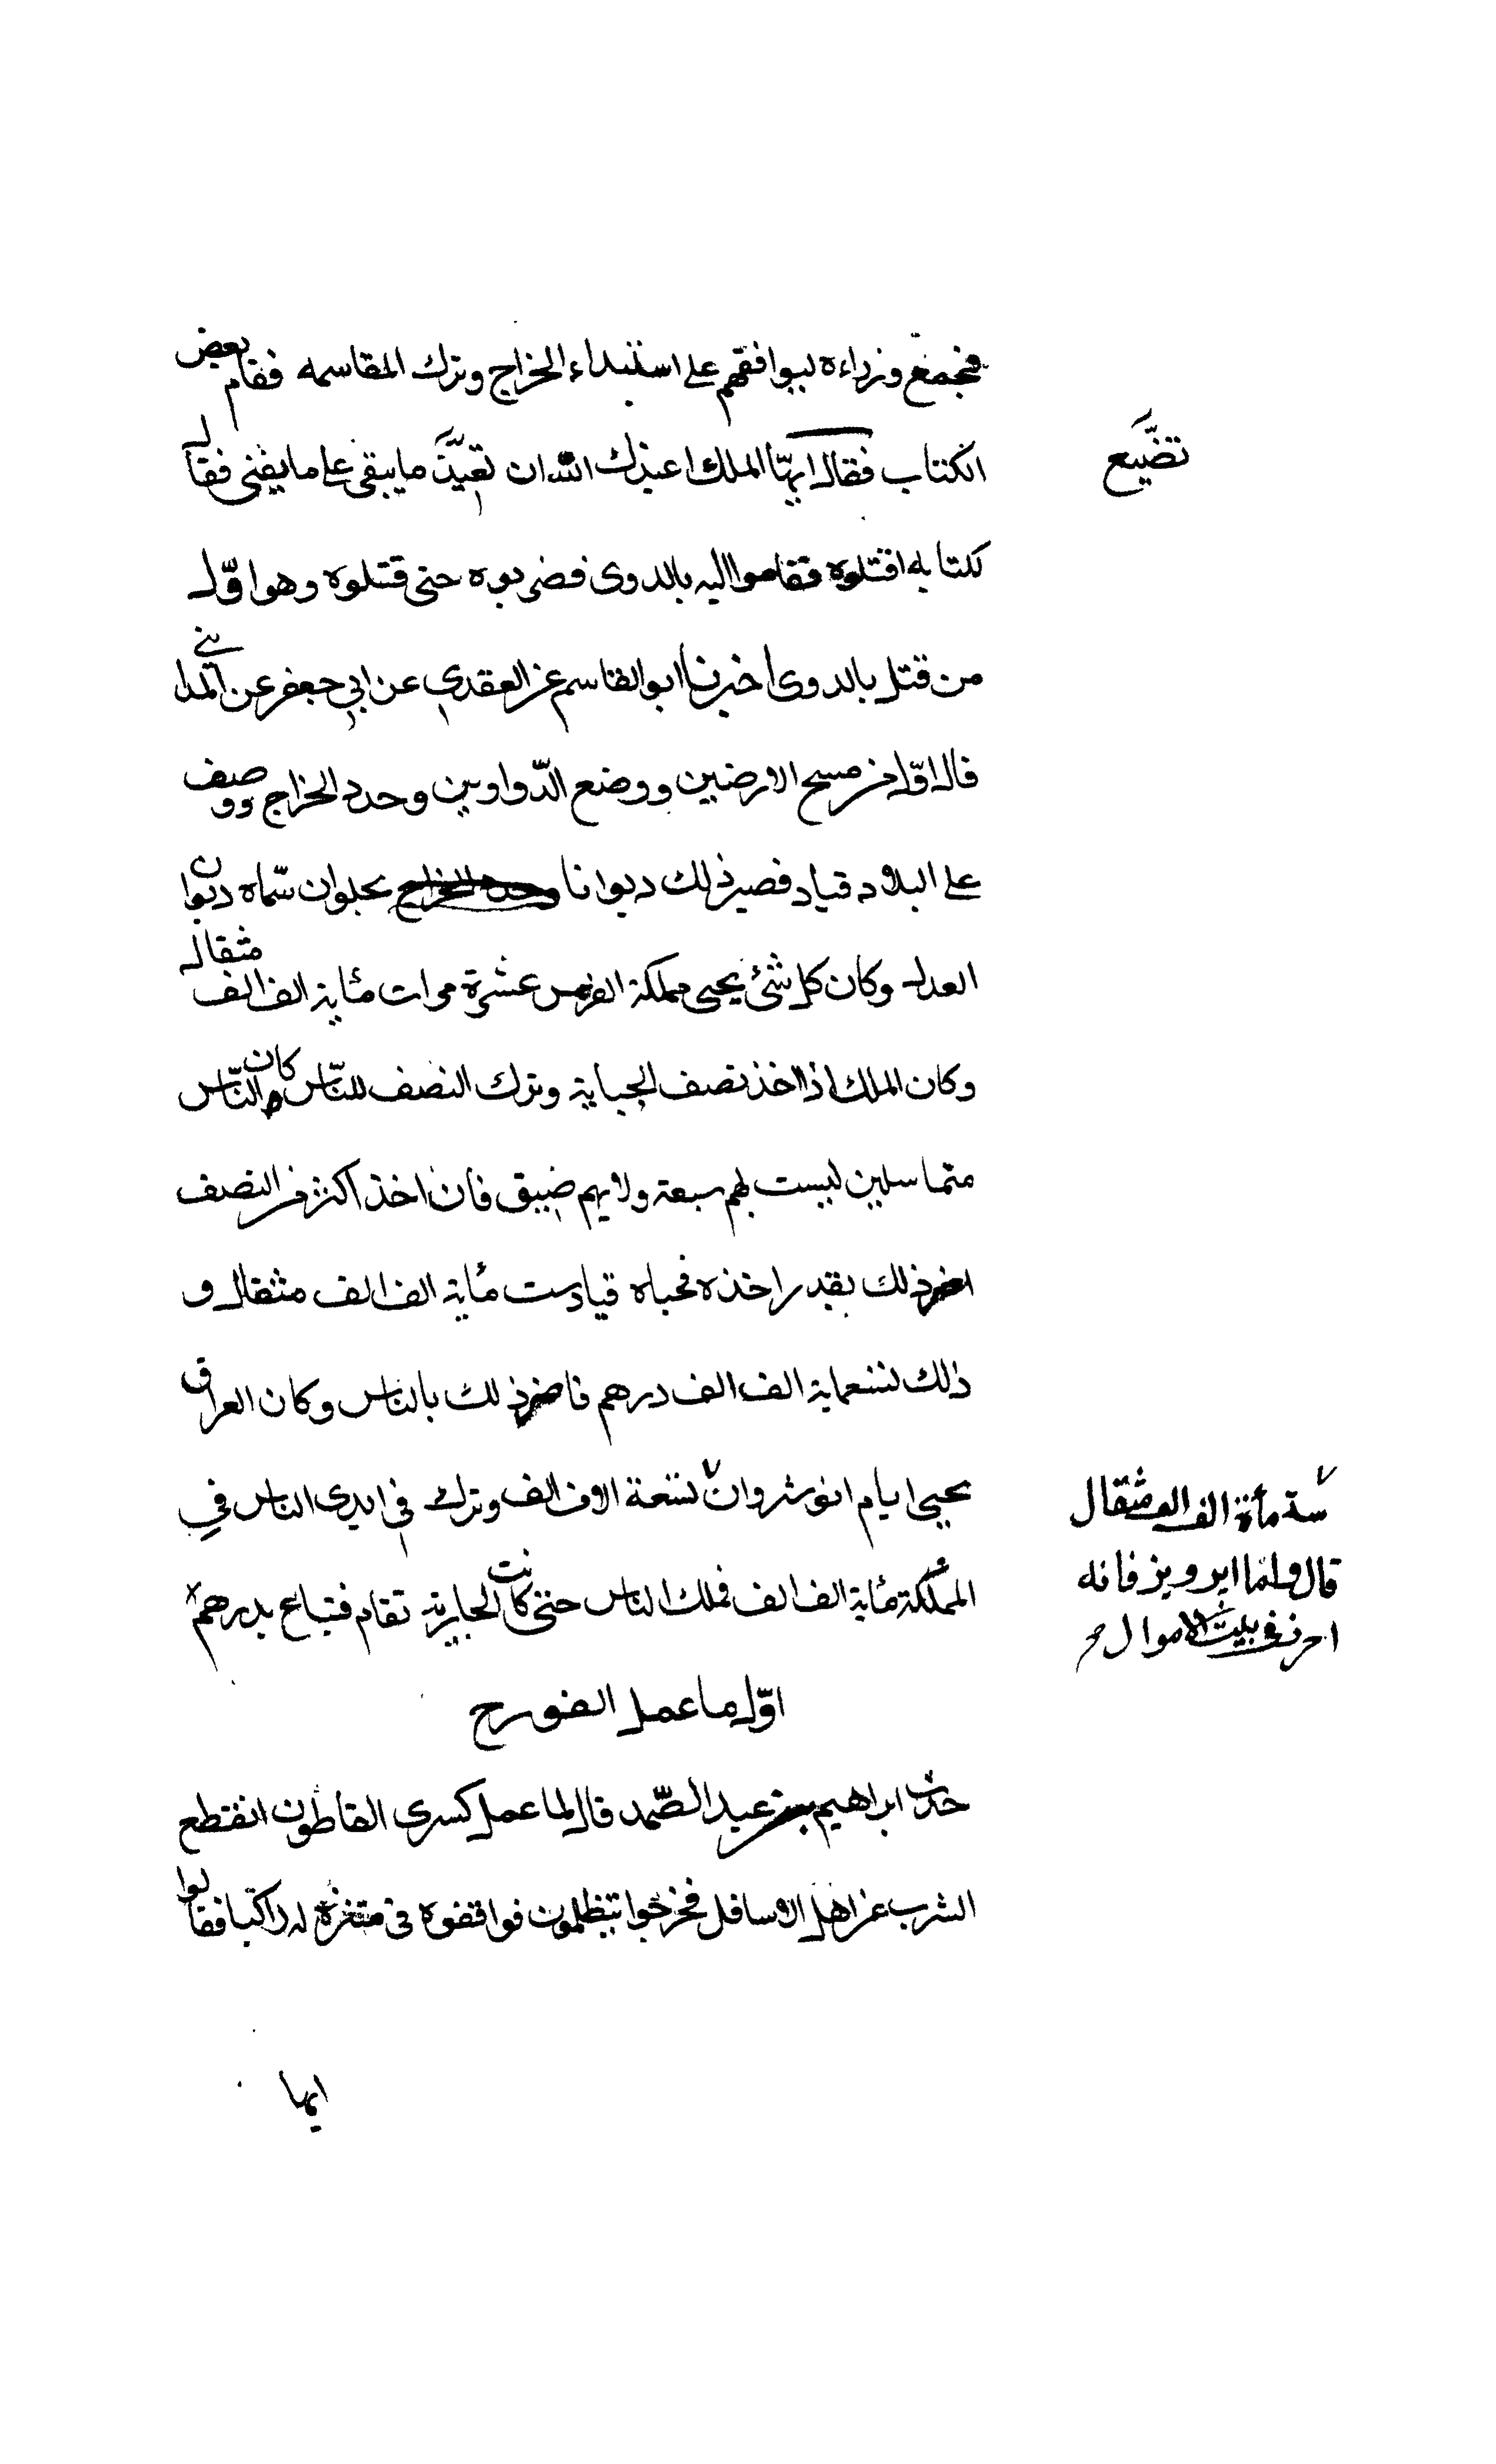 فجمع وزراءه ليوافقهم على استبداء الخراج وترك المقاسمه فقام بعض
الكتاب فقال ايها الملك اعيذك الله ان تقيد ما يبقى على ما يفنى فقال
تضيع
لكتابه اقتلوه فقاموا اليه بالدوى فضربوه حتى قتلوه وهو اول
من قتل بالدوى اخبرنا ابو القاسم عن العقدي عن ابي جعفر عن المدايني
قال اول من مسح الارضين ووضع الدواوين وحدد الخراج ووصف
على البلاد قباد فصير ذلك ديوانا بحلوان سماه ديوان
العدل وكان كل شئ يحيى مملكة الفرس عشرة مرات مئاية الف الف مثقال
وكان الملك اذا اخذ نصف الجباية وترك النصف للناس كان الناس
متماسلين ليست لهم سعة ولا بهم ضيق فان اخذ اكثر من النصف
اضر ذلك بقدر اخذه فجباه قباد ست مئاية الف الف مثقال و
ذلك تسعماية الف الف درهم فاضر ذلك بالناس وكان العراق
يحيى ايام انوشروان تسعة الاف الف وترك في ايدي الناس في
المملكة مئاية الف الف فملك الناس حتى كانت الجارية تقام فتباع بدرهم
ستة مأة الف الف مثقال
قال ولما ابرويز فانه
احرز في بيت الاموال
اول ما عمل الفورج
حدث ابراهيم بن عبد الصمد قال لما عمل كسرى القاطون انقطع
الشرب عن اهل الاسافل فخرجوا يتظلمون فواقفوه في متنزه له راكبا فقالوا
ايها